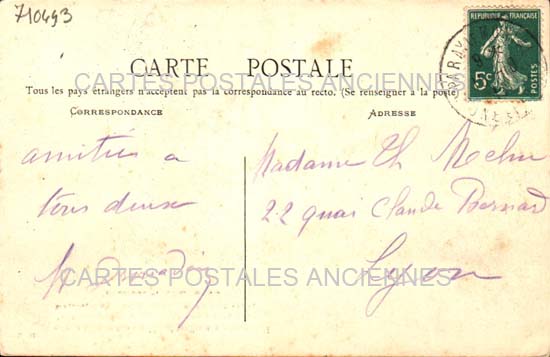 710493
RÉPUBLIQUE FRANÇAISE
5c
CARTE POSTALE
CARTES POSTALES ANCIENNES
Tous les pays étrangers n'acceptent pas la correspondance au recto. (Se renseigner à la poste)
CORRESPONDANCE
ADRESSE
amitiés a
tous deux
Madame Th
22 quai Claude Bernard
Lyon
CARTES POSTALES ANCIENNES